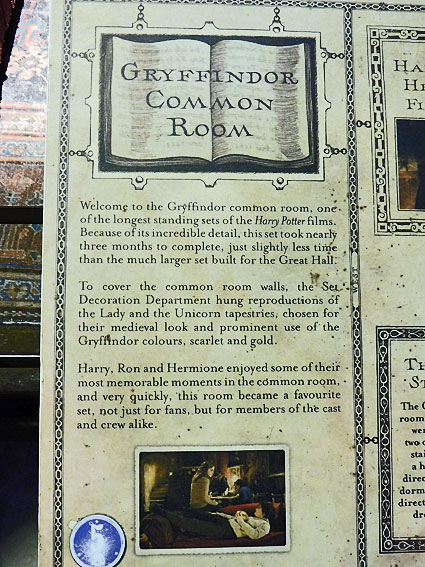 GRYFFINDOR
COMMON
ROOM
Welcome to the Gryffindor common room, one
of the longest standing sets of the Harry Potter films.
Because of its incredible detail, this set took nearly
three months to complete, just slightly less time
than the much larger set built for the Great Hall.
To cover the common room walls, the Set
Decoration Department hung reproductions of
the Lady and the Unicorn tapestries, chosen for
their medieval look and prominent use of the
Gryffindor colours, scarlet and gold.
Harry, Ron and Hermione enjoyed some of their
most memorable moments in the common room,
and very quickly, this room became a favourite
set, not just for fans, but for members of the cast
and crew alike.
HA
HE
FI
TH
ST
The G
room
wer
two o
stai
a h
direc
dorm
direct
dre